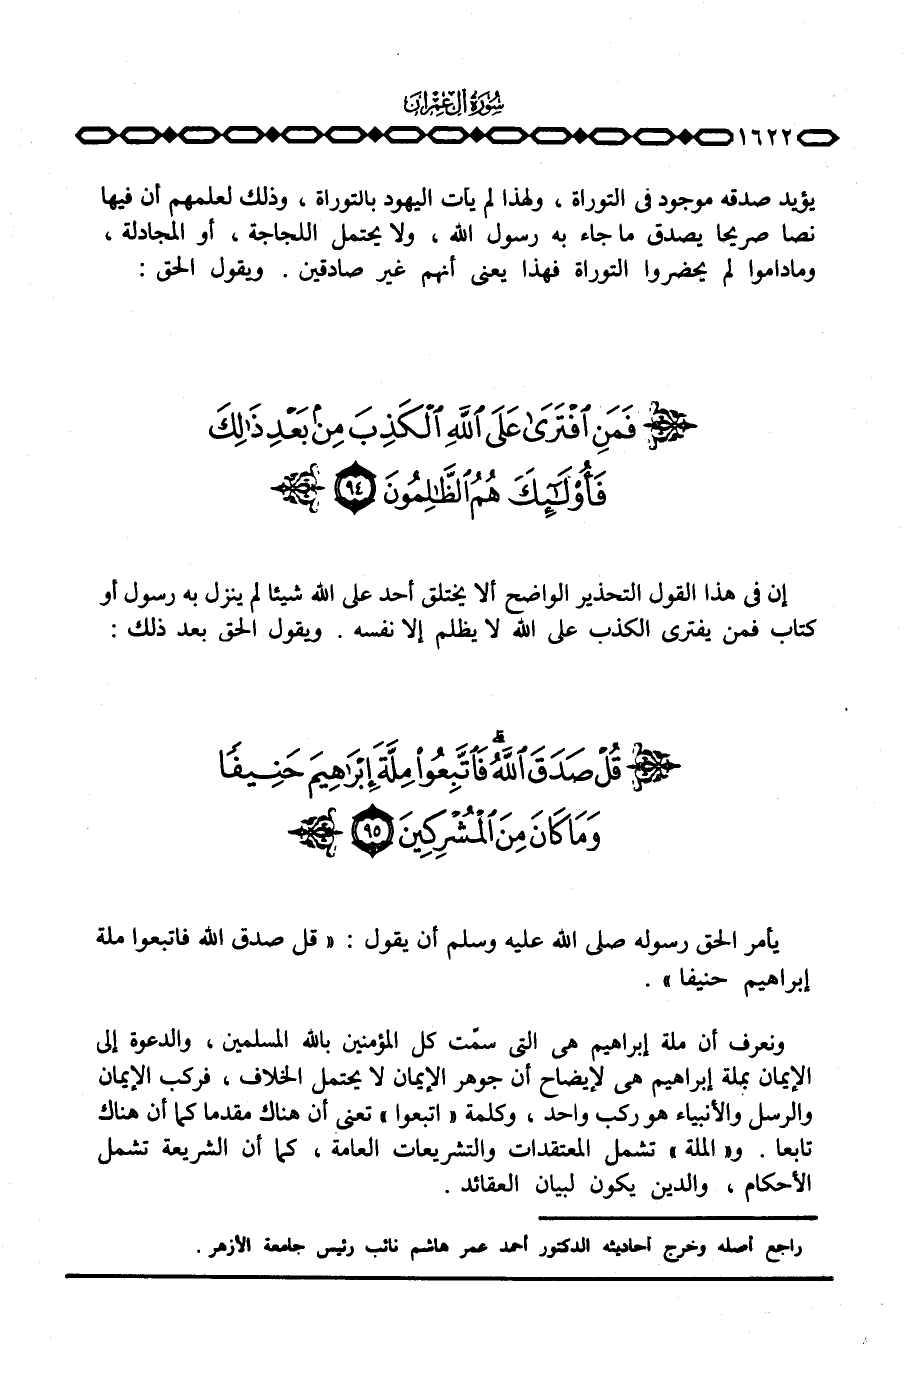 سُورَةُ آلِ عِمْرَانَ
١٦٢٢
يؤيد صدقه موجود فى التوراة ، ولهذا لم يأت اليهود بالتوراة ، وذلك لعلمهم أن فيها
نصا صريحا يصدق ما جاء به رسول الله ، ولا يحتمل اللجاجة ، أو المجادلة ،
وماداموا لم يحضروا التوراة فهذا يعنى أنهم غير صادقين . ويقول الحق :
فَمَنِ ٱفْتَرَىٰ عَلَى ٱللَّهِ ٱلْكَذِبَ مِنۢ بَعْدِ ذَٰلِكَ
فَأُو۟لَـٰٓئِكَ هُمُ ٱلظَّـٰلِمُونَ ٩٤
إن فى هذا القول التحذير الواضح ألا يختلق أحد على الله شيئا لم ينزل به رسول أو
كتاب فمن يفترى الكذب على الله لا يظلم إلا نفسه . ويقول الحق بعد ذلك :
قُلْ صَدَقَ ٱللَّهُ ۗ فَٱتَّبِعُوا۟ مِلَّةَ إِبْرَٰهِيمَ حَنِيفًا
وَمَا كَانَ مِنَ ٱلْمُشْرِكِينَ ٩٥
يأمر الحق رسوله صلى الله عليه وسلم أن يقول : « قل صدق الله فاتبعوا ملة
إبراهيم حنيفا » .
ونعرف أن ملة إبراهيم هى التى سمّت كل المؤمنين بالله المسلمين ، والدعوة إلى
الإيمان بملة إبراهيم هى لإيضاح أن جوهر الإيمان لا يحتمل الخلاف ، فركب الإيمان
والرسل والأنبياء هو ركب واحد ، وكلمة « اتبعوا » تعنى أن هناك مقدما كما أن هناك
تابعا . و« الملة » تشمل المعتقدات والتشريعات العامة ، كما أن الشريعة تشمل
الأحكام ، والدين يكون لبيان العقائد .
راجع أصله وخرج أحاديثه الدكتور أحمد عمر هاشم نائب رئيس جامعة الأزهر .